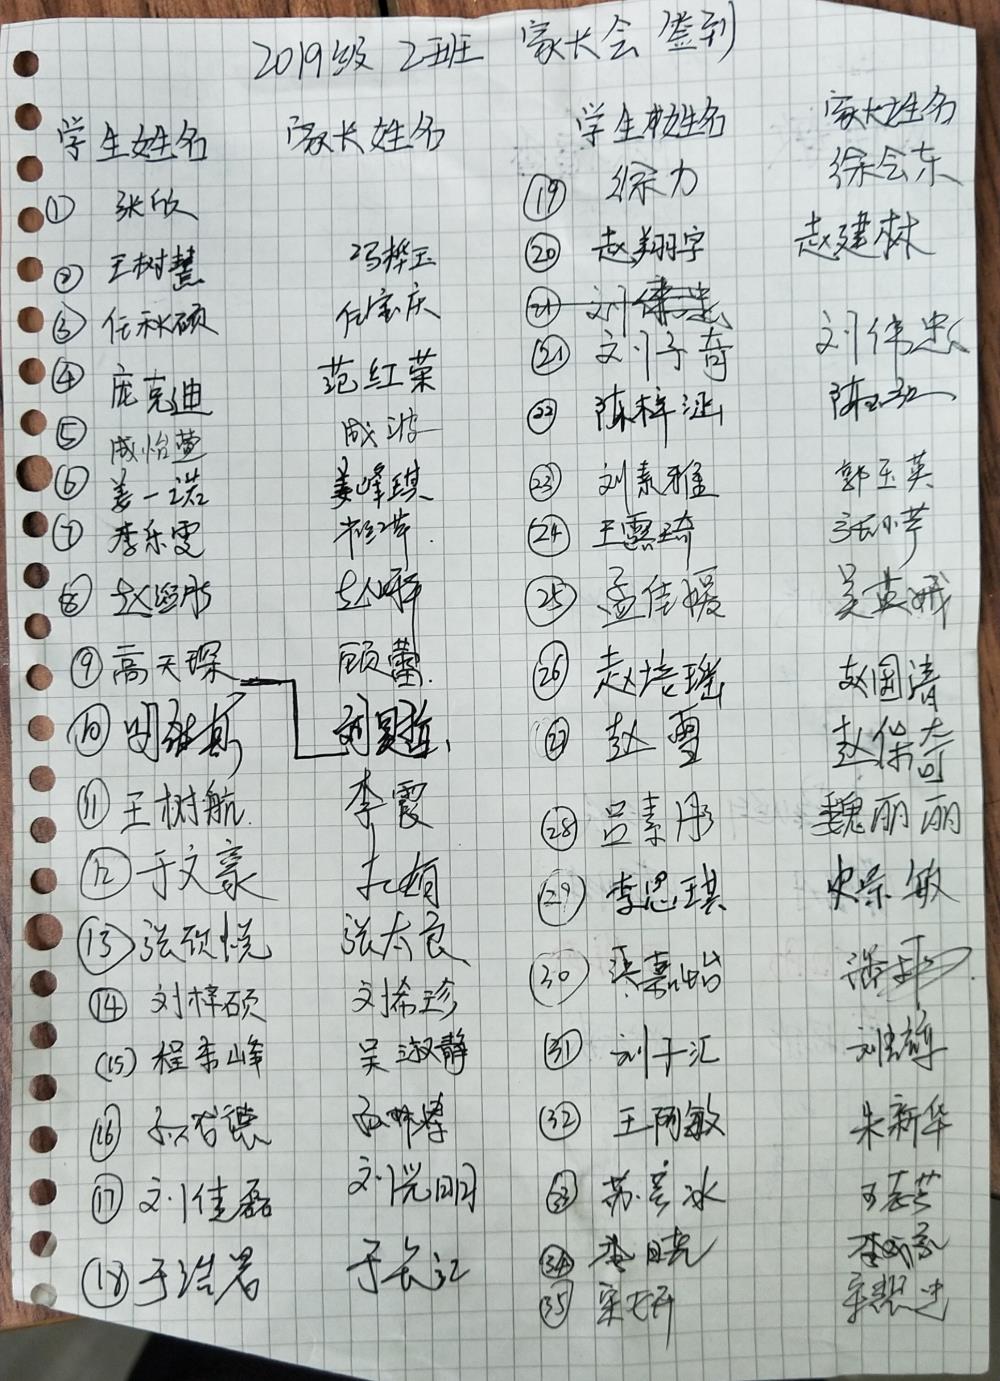 2019级 2班 家长会签到
学生姓名 家长姓名
① 张欣
② 王树慧 冯桦玉
③ 任秋硕 任宝庆
④ 庞克迪 范红荣
⑤ 成怡萱 成波
⑥ 姜一诺 姜峰琪
⑦ 李乐雯
⑧
⑨ 高天琛 顾蕾
⑩
⑪ 王树航 李霞
⑫ 于文豪
⑬ 张欣悦 张太良
⑭ 刘梓硕 刘希珍
(15) 程秀峰 吴淑静
⑯
⑰ 刘佳磊 刘光明
⑱ 于浩君 于长江
学生姓名 家长姓名
⑲ 徐力 徐会东
⑳ 赵翔宇 赵建林
㉑ 刘伟忠
㉑ 刘子奇 刘伟忠
㉒ 陈梓涵
㉓ 刘素雅 郭玉英
㉔ 王霖琦 张小芹
㉕ 孟佳媛 吴英娥
㉖ 赵培瑶 赵国清
㉗ 赵雪 赵保奇
㉘ 吕素彤 魏丽丽
㉙ 李思琪 史荣敏
㉚
㉛ 刘子汇
㉜ 王阿敏 朱新华
㉝ 苏彦冰 王志芳
㉞ 李晓
㉟ 宋妍